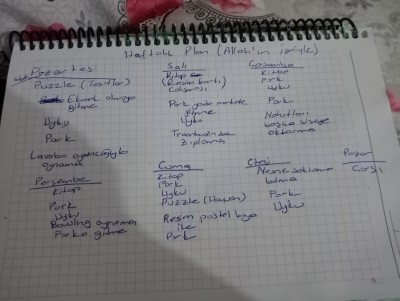 Haftalık Plan (Allah'ın izniyle)
Pazartesi
Puzzle (Tasıtlar)
Ekmek almaya
gitme
Uyku
Park
Lavabo oyuncağıyla
oynama
Salı
Kitap
(Resim kartı)
Calısması
Park yada markete
gitme
Uyku
Trambolinde
Zıplama
Carsamba
Kitap
Park
Uyku
Park
Nohutları
baska siseye
aktarma
Persembe
Kitap
Park
Uyku
Bowling oynama
Parka gitme
Cuma
Kitap
Park
Uyku
Puzzle (Hayvan)
Resim pastel boya
ile
Park
Ctesi
Nesne saklama
bulma
Park
Uyku
Pazar
Carsı